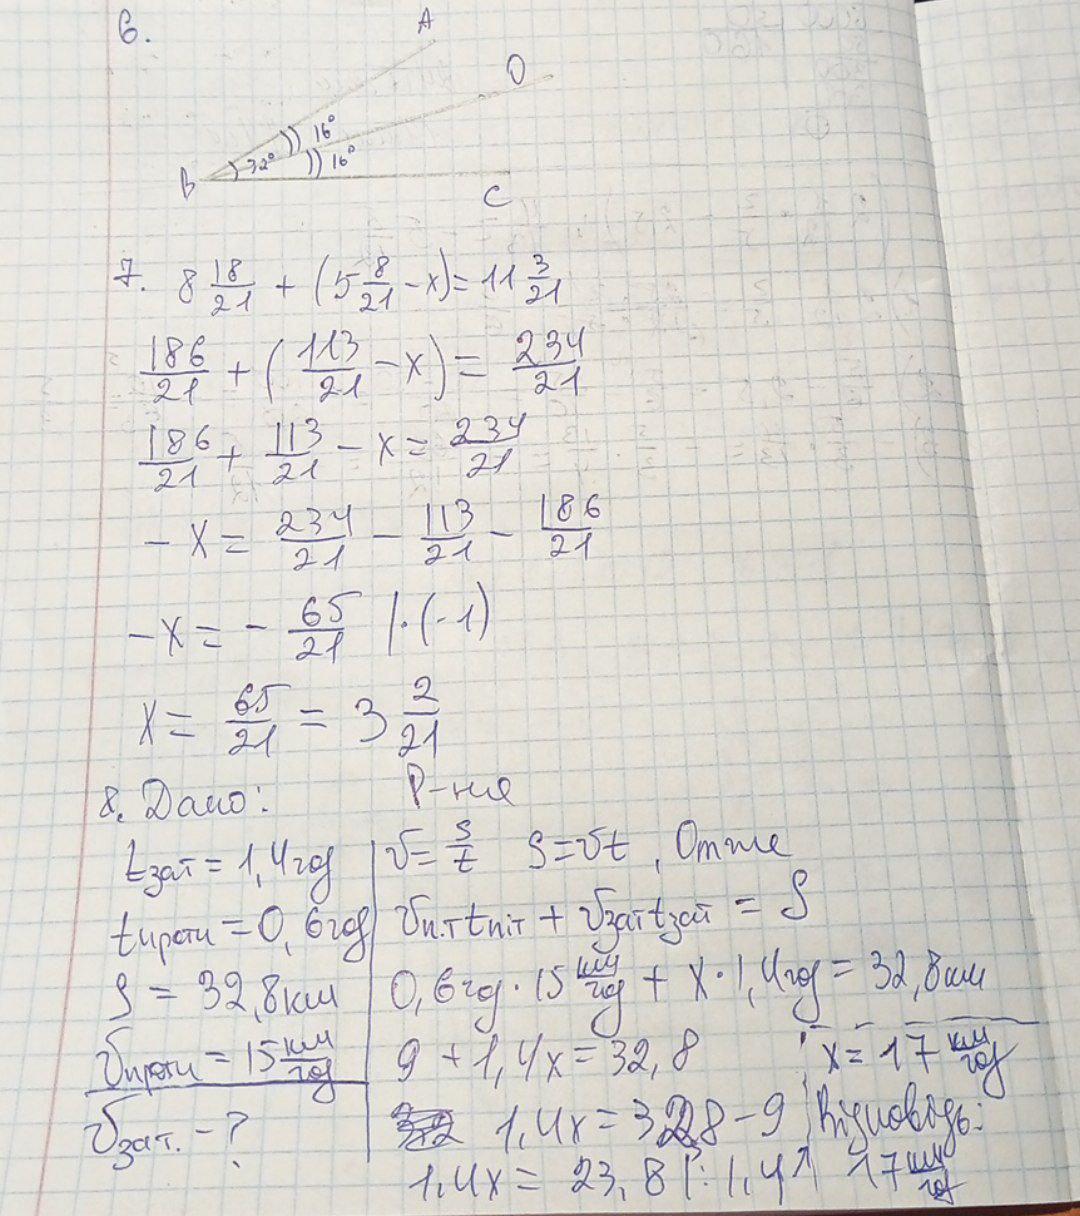 6.
A
O
16°
32° 16°
B
C
7. 8 18/21 + (5 8/21 - x) = 11 3/21
186/21 + (113/21 - x) = 234/21
186/21 + 113/21 - x = 234/21
-x = 234/21 - 113/21 - 186/21
-x = - 65/21 |·(-1)
x = 65/21 = 3 2/21
8. Дано:
tзат = 1,4 год
tпроти = 0,6 год
S = 32,8 км
υпроти = 15 км/год
υзат. - ?
Р-ня
υ = S/t S = υt, Отже
υп.т tпіт + υзат tзат = S
0,6 год · 15 км/год + x · 1,4 год = 32,8 км
9 + 1,4x = 32,8
1,4x = 32,8 - 9
1,4x = 23,8 |: 1,4
x = 17 км/год
Відповідь:
17 км/год